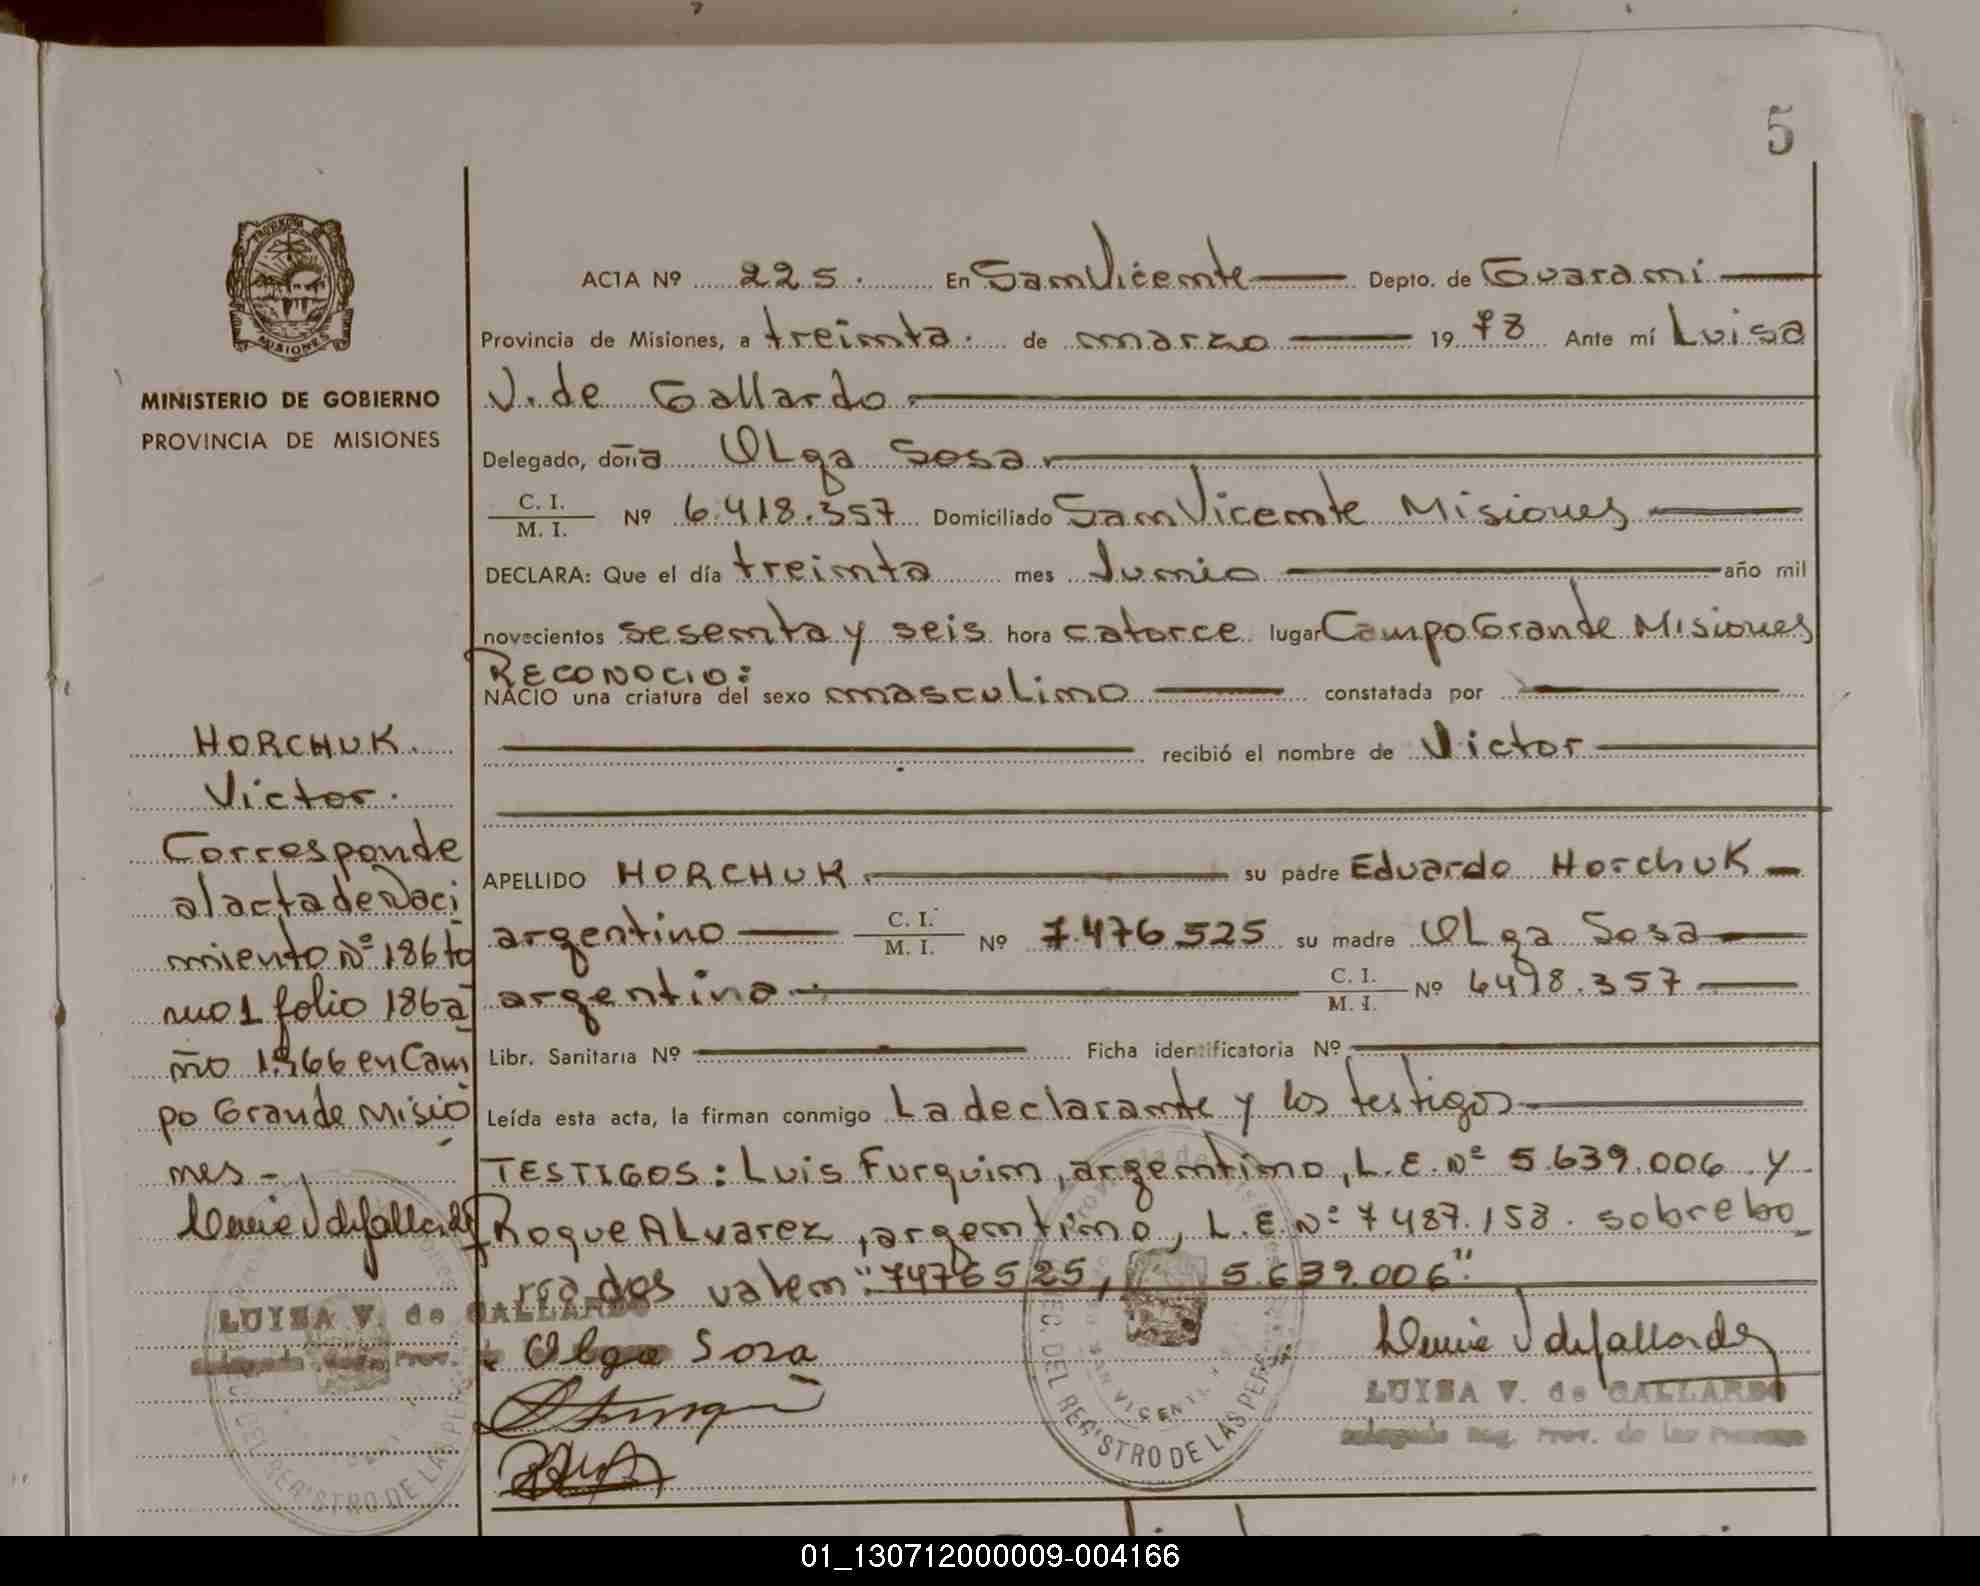 5
PROVINCIA
MISIONES
MINISTERIO DE GOBIERNO
PROVINCIA DE MISIONES
HORCHUK.
Victor.
Corresponde
al acta de Naci
miento Nº 186 to
mo 1 folio 186 a
ño 1966 en Cam
po Grande Misio
nes -
LUISA V. de GALLARDO
ACTA Nº 225. En San Vicente Depto. de Guaraní
Provincia de Misiones, a treinta. de marzo 1978 Ante mí Luisa
V. de Gallardo.
Delegado, doña Olga Sosa
C. I. / M. I. Nº 6.418.357 Domiciliado San Vicente Misiones
DECLARA: Que el día treinta mes Junio año mil
novecientos sesenta y seis hora catorce lugar Campo Grande Misiones
RECONOCIO:
NACIO una criatura del sexo masculino constatada por
recibió el nombre de Victor
APELLIDO HORCHUK. su padre Eduardo Horchuk
argentino C. I. / M. I. Nº 7.476.525 su madre Olga Sosa
argentina C. I. / M. I. Nº 6418.357
Libr. Sanitaria Nº Ficha identificatoria Nº
Leída esta acta, la firman conmigo La declarante y los testigos
TESTIGOS: Luis Furquim, argentino, L.E. Nº 5.639.006 y
Roque ALvarez, argentino, L.E. Nº 7487.158. sobrebo
rrados valen: "7476525, 5.639.006".
Olga Sosa
LUISA V. de GALLARDO
Delegada Reg. Prov. de las Personas
DEL REGISTRO DE LAS PER
SAN VICENTE
DEL REGISTRO DE LAS PE
01_130712000009-004166